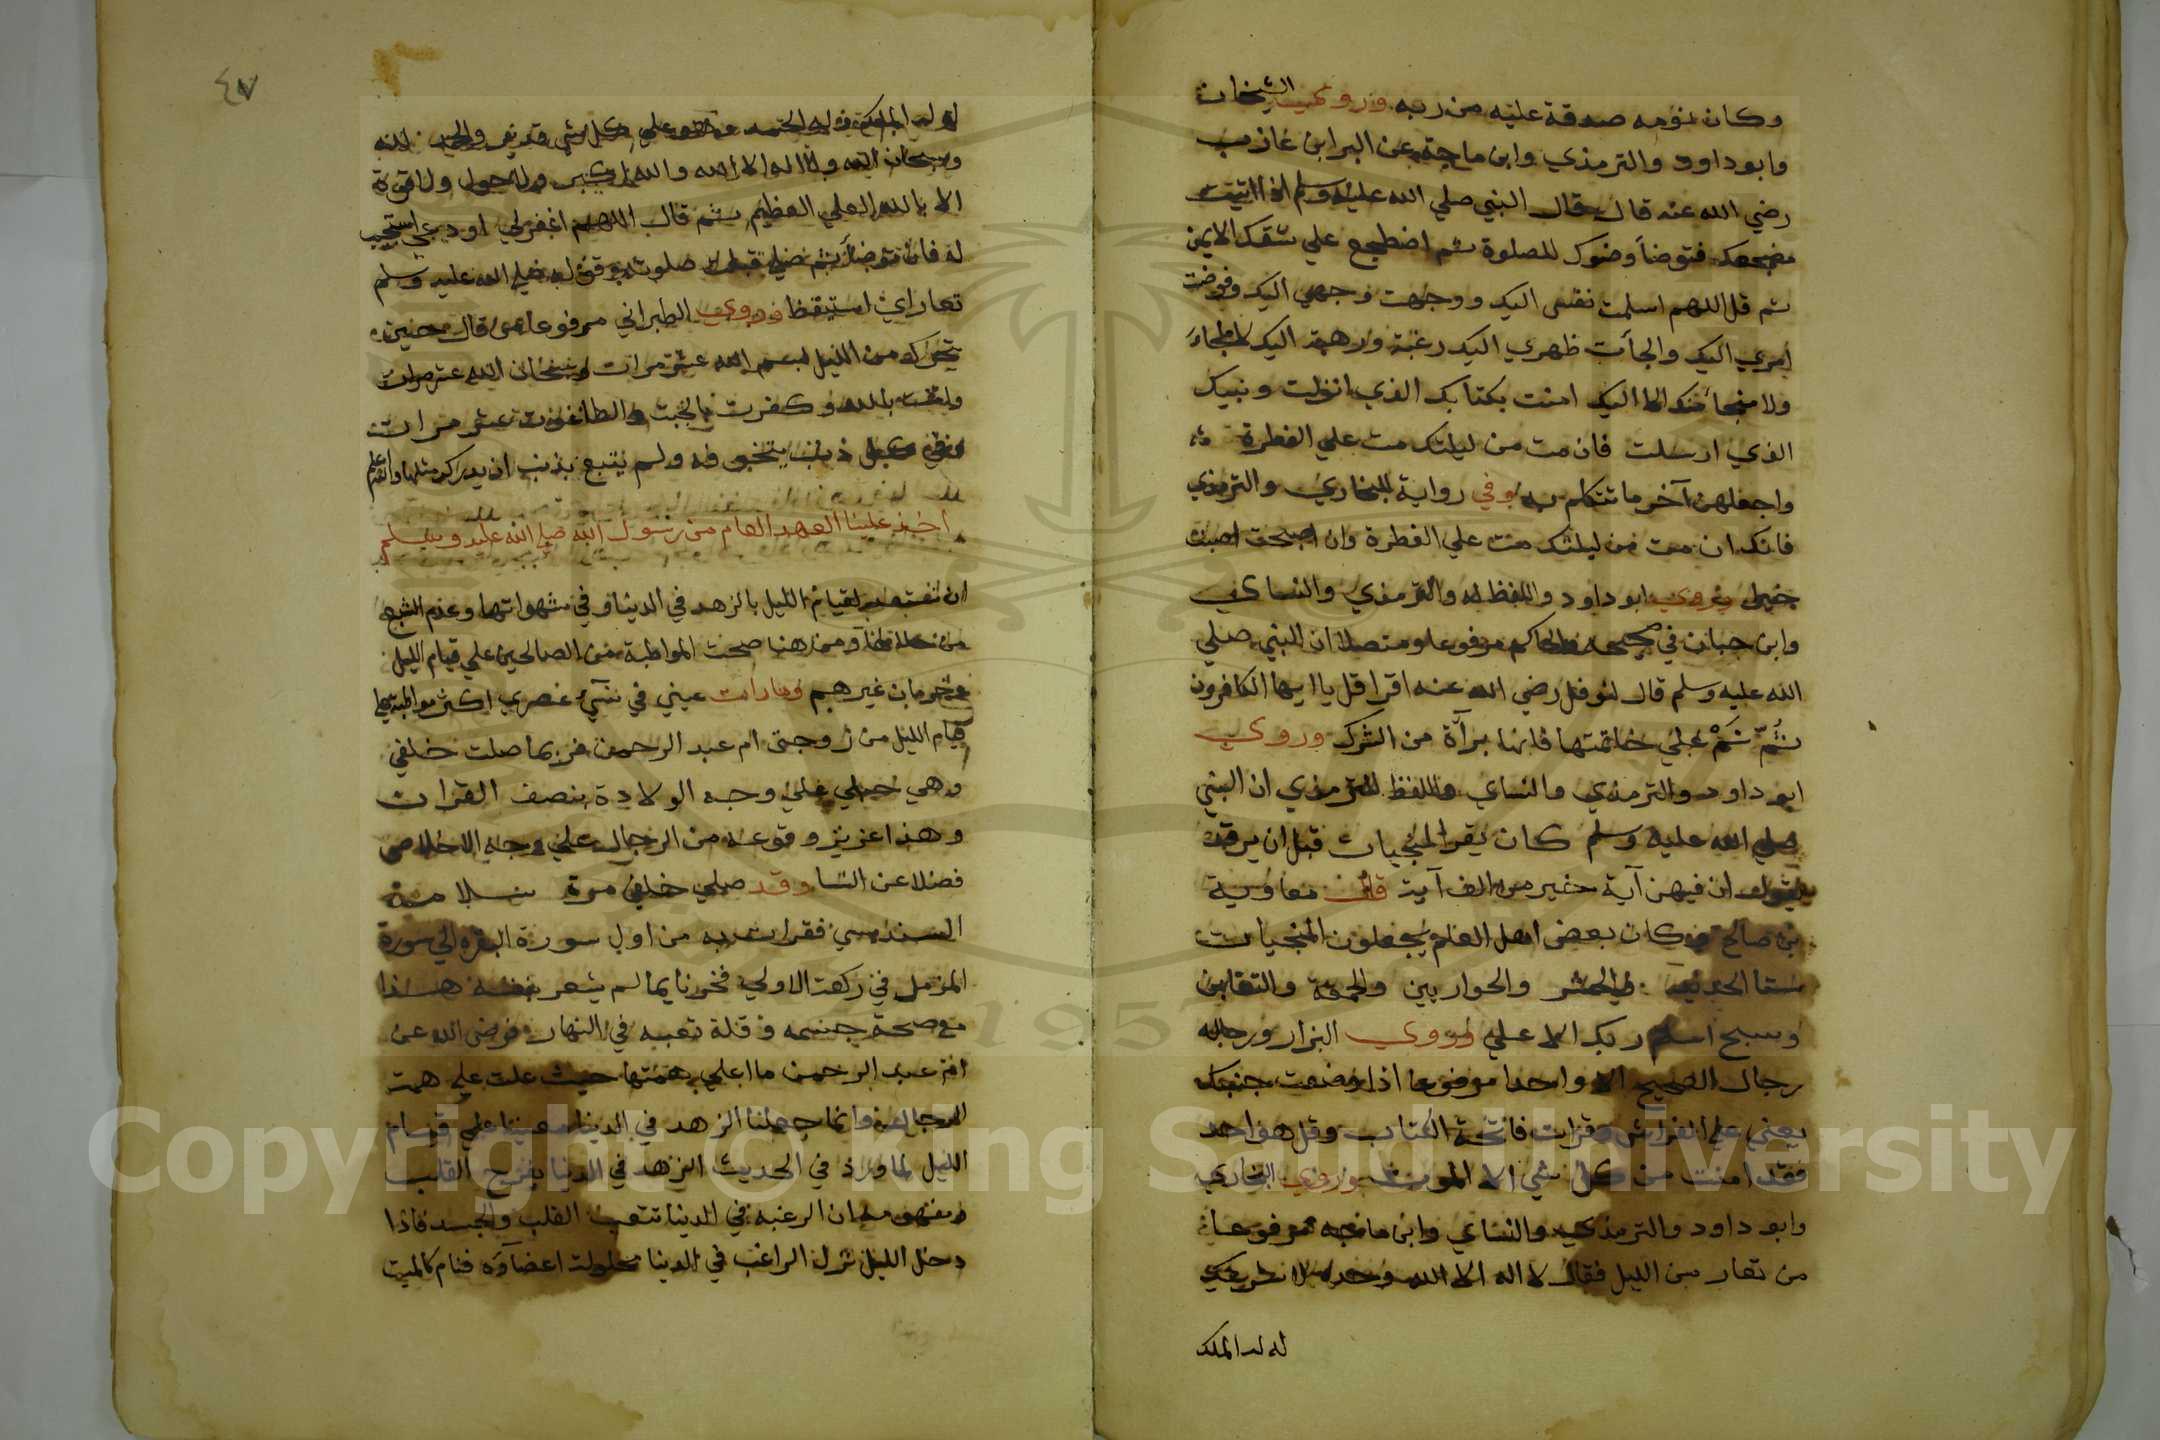 وكان نومه صدقة عليه من ربه وروي الشيخان
وابو داود والترمذي وابن ماجة عن البرا بن عازب
رضي الله عنه قال قال النبي صلي الله عليه وسلم اذا اتيت
مضجعك فتوضا وضوك للصلوة ثم اضطجع علي شقك الايمن
ثم قل اللهم اسلمت نفسي اليك ووجهت وجهي اليك وفوضت
امري اليك والجأت ظهري اليك رغبة ورهبة اليك لا ملجاء
ولا منجا منك الا اليك امنت بكتابك الذي انزلت ونبيك
الذي ارسلت فان مت من ليلتك مت علي الفطرة
واجعلهن آخر ما تتكلم به وفي رواية للبخاري والترمذي
فانك ان مت من ليلتك مت علي الفطرة وان اصبحت اصبت
خيرا وروي ابو داود واللفظ له والترمذي والنساي
وابن حبان في صحيحه والحاكم مرفوعا ومتصلا ان النبي صلي
الله عليه وسلم قال لنوفل رضي الله عنه اقرا قل يا ايها الكافرون
ثُمّ نَمْ علي خاتمتها فانها برآة من الشرك وروي
ابو داود والترمذي والنساي واللفظ للترمذي ان النبي
صلي الله عليه وسلم كان يقرا المنجيات قبل ان يرقد
يقول ان فيهن آية خير من الف آية قال معاوية
بن صالح وكان بعض اهل العلم يجعلون المنجيات
ستا الحديد والحشر والحواريين والجمعة والتغابن
وسبح اسم ربك الاعلي وروي البزار ورجاله
رجال الصحيح الا واحدا مرفوعا اذا وضعت جنبك
يعني علي الفراش وقرات فاتحة الكتاب وقل هو احد
فقد امنت من كل شي الا الموت وروي البخاري
وابو داود والترمذي والنساي وابن ماجه مرفوعا
من تعار من الليل فقال لا اله الا الله وحده لا شريك
له له الملك
له له الملك وله الحمد وهو علي كل شي قدير والحمد لله
وسبحان الله ولا اله الا الله والله اكبر ولا حول ولا قوة
الا بالله العلي العظيم ثم قال اللهم اغفرلي او دعي استجيب
له فان توضأ ثم صلي قبلت صلوته وقوله صلي الله عليه وسلم
تعار اي استيقظ وروي الطبراني مرفوعا من قال حين
يتحرك من الليل بسم الله عشر مرات وسبحان الله عشر مرات
وامنت بالله وكفرت بالجبت والطاغوت عشر مرات
وقي كل ذنب يتخوفه ولم ينبغ بذنب ان يدركه مثلها والله اعلم
اخذ علينا العهد العام من رسول الله صلي الله عليه وسلم
ان نستعد لقيام الليل بالزهد في الدنيا وفي شهواتها وعدم الشبع
من حلالها ومن هنا صحت المواظبة من الصالحين علي قيام الليل
وحرمان غيرهم وما رات عيني في نسآء عصري اكثر مواظبة علي
قيام الليل من زوجتي ام عبد الرحمن فربما صلت خلفي
وهي حبلي علي وجه الولادة بنصف القران
وهذا عزيز وقوعه من الرجال علي وجه الاخلاص
فضلا عن النسا وقد صلي خلفي مرة سلامة
السنديسي فقرات به من اول سورة البقره الي سورة
المزمل في ركعة الاولي فخر نايما لم يشعر بنفسه هذا
مع صحة جسمه وقلة تعبه في النهار فرضي الله عن
ام عبد الرحمن ما اعلي همتها حيث علت علي همة
الرجال وانما جعلنا الزهد في الدنيا معينا علي قيام
الليل لما ورد في الحديث الزهد في الدنيا يفرح القلب
ومفهومه ان الرغبه في الدنيا تتعب القلب والجسد فاذا
دخل الليل نزل الراغب في الدنيا محلولة اعضآوه فنام كالميت
٤٧
1957
Copyright © King Saud University